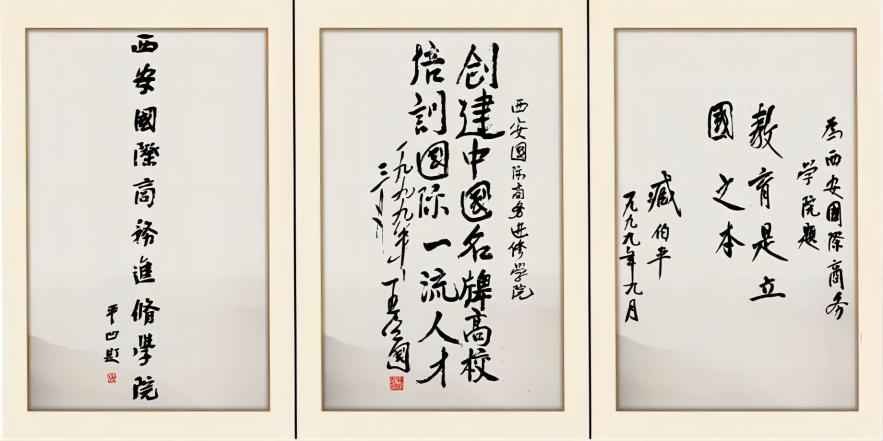 西安國際商務進修學院
平凹題
西安國际商务进修学院
创建中國名牌高校
培訓國际一流人才
一九九九年
為西安國際商务
學院題
教育是立
國之本
臧伯平
一九九九年九月